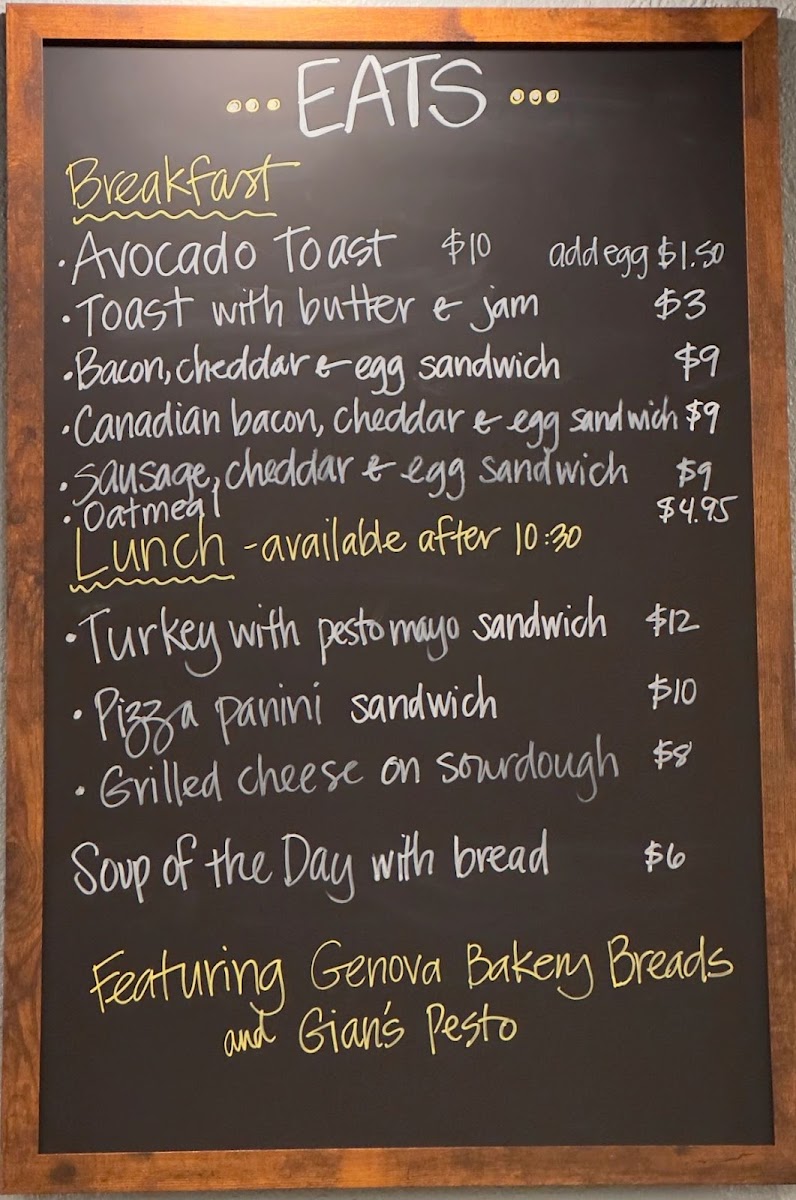 ••• EATS •••
Breakfast
• Avocado Toast $10 add egg $1.50
• Toast with butter & jam $3
• Bacon, cheddar & egg sandwich $9
• Canadian bacon, cheddar & egg sandwich $9
• Sausage, cheddar & egg sandwich $9
• Oatmeal $4.95
Lunch - available after 10:30
• Turkey with pesto mayo sandwich $12
• Pizza panini sandwich $10
• Grilled cheese on sourdough $8
Soup of the Day with bread $6
Featuring Genova Bakery Breads
and Gian's Pesto